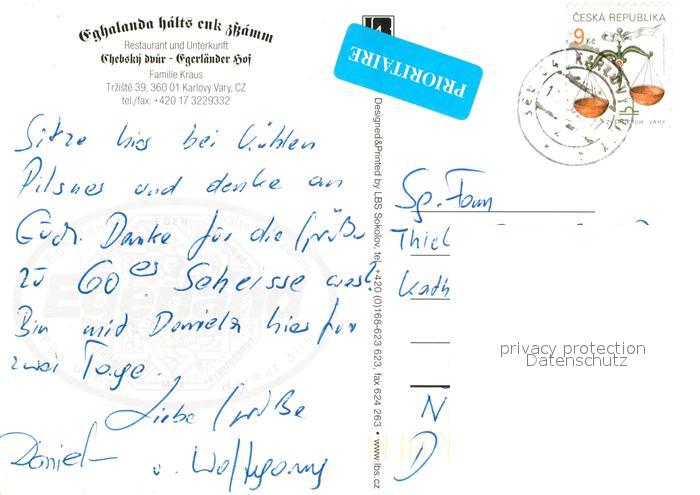 Eghalanda hålts enk zßåmm
Restaurant und Unterkunft
Chebský dvůr - Egerländer Hof
Familie Kraus
Tržiště 39, 360 01 Karlovy Vary, CZ
tel./fax: +420 17 3229332
Sitze hier bei kühlen
Pilsner und denke an
Euch. Danke für die Grüße
zu 60er Scheisse was?
Bin mit Daniela hier für
zwei Tage.
Liebe Grüße
Daniel u. Wolfgang
PRIORITAIRE
Designed&Printed by LBS Sokolov, tel. +420 (0)168-623 623, fax 624 263 • www.lbs.cz
ČESKÁ REPUBLIKA
9 Kč
VÁHY
Sp. Fam
Thiel
Kath
N
D
privacy protection
Datenschutz
EGER
Egerland